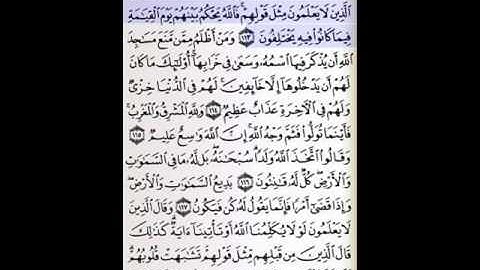 ٱلَّذِينَ لَا يَعْلَمُونَ مِثْلَ قَوْلِهِمْ ۚ فَٱللَّهُ يَحْكُمُ بَيْنَهُمْ يَوْمَ ٱلْقِيَٰمَةِ
فِيمَا كَانُوا۟ فِيهِ يَخْتَلِفُونَ ١١٣ وَمَنْ أَظْلَمُ مِمَّن مَّنَعَ مَسَٰجِدَ
ٱللَّهِ أَن يُذْكَرَ فِيهَا ٱسْمُهُۥ وَسَعَىٰ فِى خَرَابِهَآ ۚ أُو۟لَٰٓئِكَ مَا كَانَ
لَهُمْ أَن يَدْخُلُوهَآ إِلَّا خَآئِفِينَ ۚ لَهُمْ فِى ٱلدُّنْيَا خِزْىٌ
وَلَهُمْ فِى ٱلْءَاخِرَةِ عَذَابٌ عَظِيمٌ ١١٤ وَلِلَّهِ ٱلْمَشْرِقُ وَٱلْمَغْرِبُ ۚ
فَأَيْنَمَا تُوَلُّوا۟ فَثَمَّ وَجْهُ ٱللَّهِ ۚ إِنَّ ٱللَّهَ وَٰسِعٌ عَلِيمٌ ١١٥
وَقَالُوا۟ ٱتَّخَذَ ٱللَّهُ وَلَدًا ۗ سُبْحَٰنَهُۥ ۖ بَل لَّهُۥ مَا فِى ٱلسَّمَٰوَٰتِ
وَٱلْأَرْضِ ۖ كُلٌّ لَّهُۥ قَٰنِتُونَ ١١٦ بَدِيعُ ٱلسَّمَٰوَٰتِ وَٱلْأَرْضِ ۖ
وَإِذَا قَضَىٰٓ أَمْرًا فَإِنَّمَا يَقُولُ لَهُۥ كُن فَيَكُونُ ١١٧ وَقَالَ ٱلَّذِينَ
لَا يَعْلَمُونَ لَوْلَا يُكَلِّمُنَا ٱللَّهُ أَوْ تَأْتِينَآ ءَايَةٌ ۗ كَذَٰلِكَ
قَالَ ٱلَّذِينَ مِن قَبْلِهِم مِّثْلَ قَوْلِهِمْ ۘ تَشَٰبَهَتْ قُلُوبُهُمْ ۗ